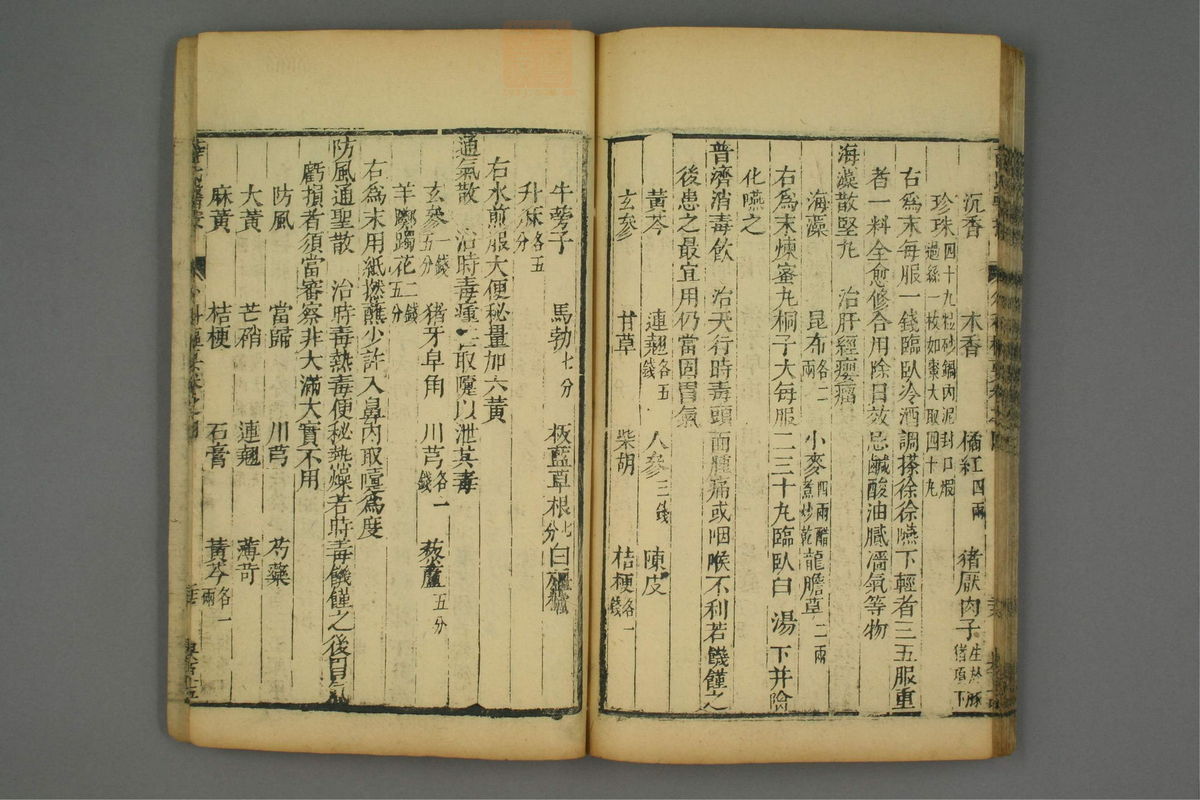 沉香 木香 橘紅四兩 猪厭肉子生於豚猪項下
珍珠四十九粒砂鍋內泥封口煅過絲一枚如棗大取四十九
右爲末每服一錢臨臥冷酒調搽徐徐嚥下輕者三五服重
者一料全愈修合用除日效忌鹹酸油膩濇氣等物
海藻散堅丸 治肝經癭瘤
海藻 昆布各二兩 小麥四兩醋煮炒乾 龍膽草二兩
右爲末煉蜜丸桐子大每服二三十丸臨臥白湯下幷噙
化嚥之
普濟消毒飲 治天行時毒頭面腫痛或咽喉不利若饑饉之
後患之最宜用仍當固胃氣
黃芩 連翹各五錢 人參三錢 陳皮
玄參 甘草 柴胡 桔梗各一錢
牛蒡子 馬勃七分 板藍草根七分 白殭蠶
升麻各五分
右水煎服大便秘量加大黃
通氣散 治時毒腫 取嚏以泄其毒
玄參一錢五分 猪牙皁角 川芎各一錢 藜蘆五分
羊躑躅花二錢五分
右爲末用紙撚蘸少許入鼻內取嚏爲度
防風通聖散 治時毒熱毒便秘熱燥若時毒饑饉之後胃氣
虧損者須當審察非大滿大實不用
防風 當歸 川芎 芍藥
大黃 芒硝 連翹 薄苛
麻黃 桔梗 石膏 黃芩各一兩